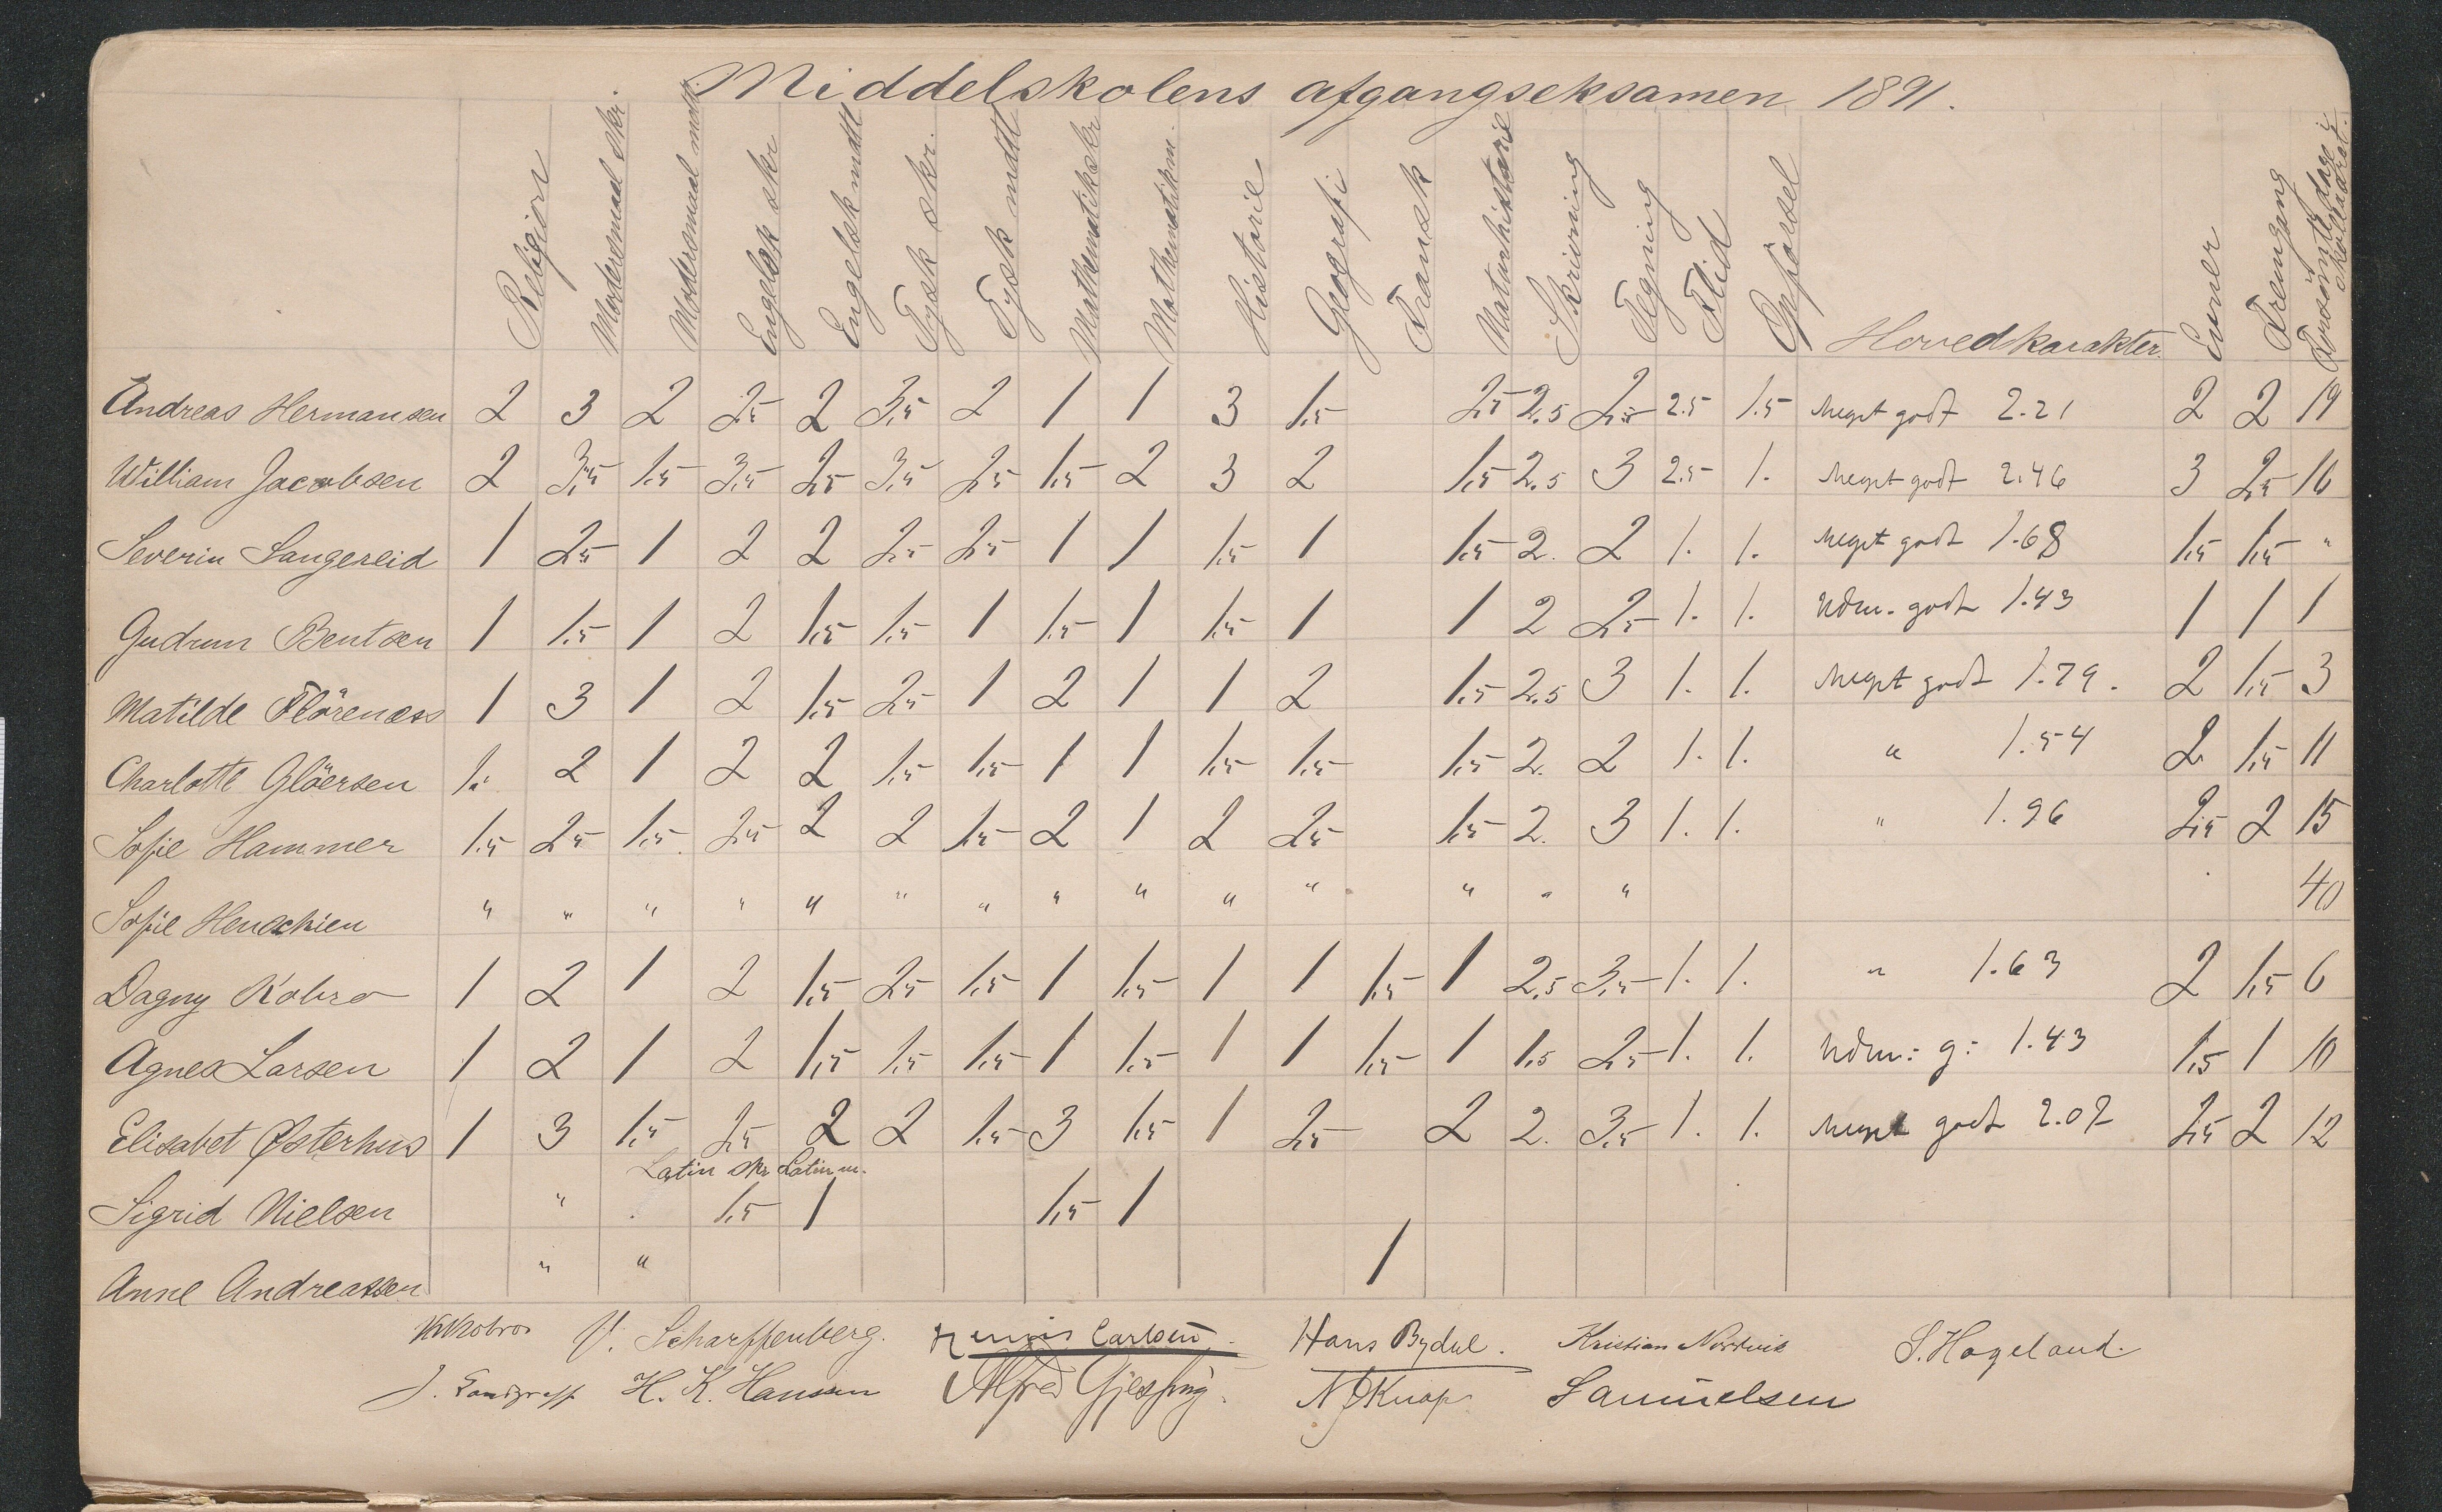 Middelskolens afgangseksamen 1891.
Religion Modersmaal skr. Modersmaal mdtl. Engelsk skr Engelsk mdtl Tysk skr. Tysk mdtl Mathematik skr Mathematik m. Historie Geografi Fransk Naturhistorie Skrivning Tegning Flid Opförsel Hovedkarakter. Evner Fremgang Forsömte dage i skoleaaret.
Andreas Hermansen 2 3 2 2,5 2 3,5 2 1 1 3 1,5 2,5 2,5 2,5 2.5 1.5 Meget godt 2.21 2 2 19
William Jacobsen 2 3,5 1,5 3,5 2,5 3,5 2,5 1,5 2 3 2 1,5 2,5 3 2.5 1. Meget godt 2.46 3 2,5 16
Severin Langereid 1 2,5 1 2 2 2,5 2,5 1 1 1,5 1 1,5 2. 2 1. 1. Meget godt 1.68 1,5 1,5 "
Gudrun Bentsen 1 1,5 1 2 1,5 1,5 1 1,5 1 1,5 1 1 2 2,5 1. 1. Udm. godt 1.43 1 1 1
Matilde Flörenæss 1 3 1 2 1,5 2,5 1 2 1 1 2 1,5 2,5 3 1. 1. Meget godt 1.79. 2 1,5 3
Charlotte Glöersen 1. 2 1 2 2 1,5 1,5 1 1 1,5 1,5 1,5 2. 2 1. 1. " 1.54 2 1,5 11
Sofie Hammer 1,5 2,5 1,5 2,5 2 2 1,5 2 1 2 2,5 1,5 2. 3 1. 1. " 1.96 2,5 2 15
Sofie Henschien " " " " " " " " " " " " " " 40
Dagny Kobro 1 2 1 2 1,5 2,5 1,5 1 1,5 1 1 1,5 1 2,5 3,5 1. 1. " 1.63 2 1,5 6
Agnes Larsen 1 2 1 2 1,5 1,5 1,5 1 1,5 1 1 1,5 1 1,5 2,5 1. 1. Udm: g: 1.43 1,5 1 10
Elisabet Østerhus 1 3 1,5 2,5 2 2 1,5 3 1,5 1 2,5 2 2. 3,5 1. 1. Meget godt 2.07 2,5 2 12
Latin skr Latin m.
Sigrid Nielsen " 1,5 1 1,5 1
Anne Andreassen " " 1
KKobro V. Scharffenberg. Carlsen. Hans Bydal. Kristian Nordvik S. Hageland.
J. H. K. Hansen Alfred Gjessing. N J Knap Samuelsen